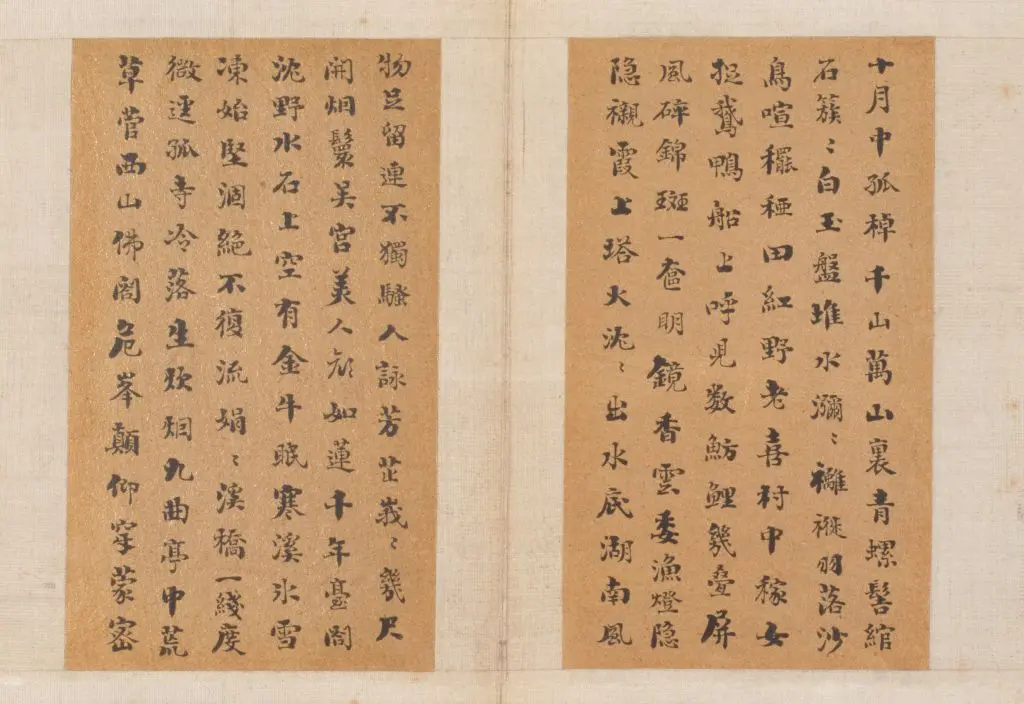 十月中孤棹千山萬山裏青螺髻綰
石簇〻白玉盤堆水瀰〻襳褷羽落沙
鳥喧䆉稏田紅野老喜村中稼女
捉鵞鴨船上呼児数魴鯉幾疊屏
風碎錦斑一奩明鏡香雲委漁燈隐
隐襯霞上塔火沈〻出水底湖南風
物足留連不獨騷人詠芳芷峩〻幾尺
開烟鬟吴宫美人顔如蓮千年臺閣
沈野水石上空有金牛眠寒溪氷雪
凍始堅涸絶不復流娟〻溪橋一綫度
微逕孤寺冷落生炊烟九曲亭中荒
草菅西山佛閣危峯顛仰穿蒙密